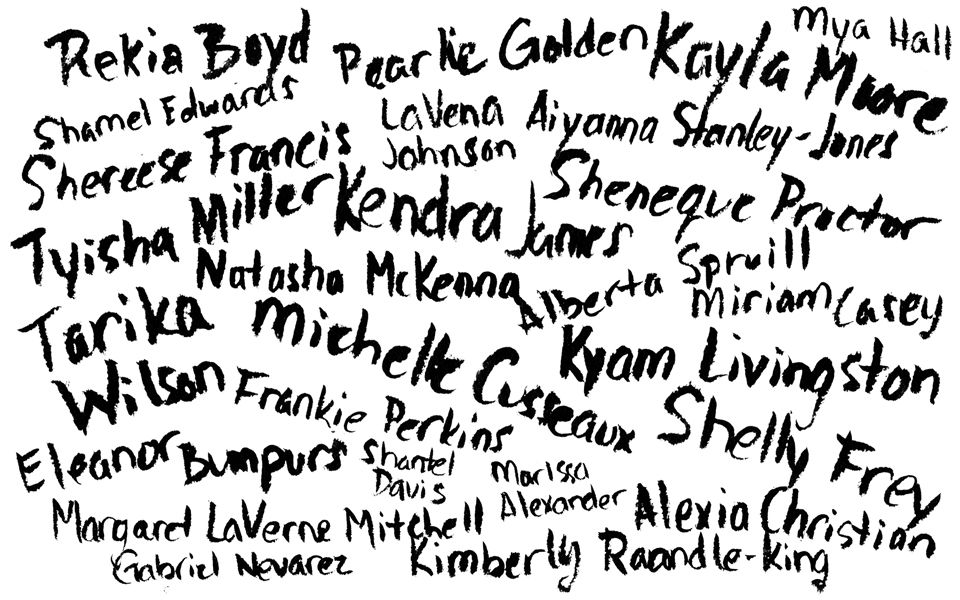 Rekia Boyd
Pearlie Golden
Kayla Moore
Mya Hall
Shamel Edwards
LaVena
Johnson
Aiyanna Stanley-Jones
Shereese Francis
Sheneque Proctor
Tyisha Miller
Kendra James
Natasha McKenna
Alberta Spruill
Miriam Casey
Tarika
Wilson
Michelle Cusseaux
Kyam Livingston
Frankie Perkins
Shelly Frey
Eleanor Bumpurs
Shantel
Davis
Marissa
Alexander
Alexia Christian
Margaret LaVerne Mitchell
Gabriel Nevarez
Kimberly Raandle-King